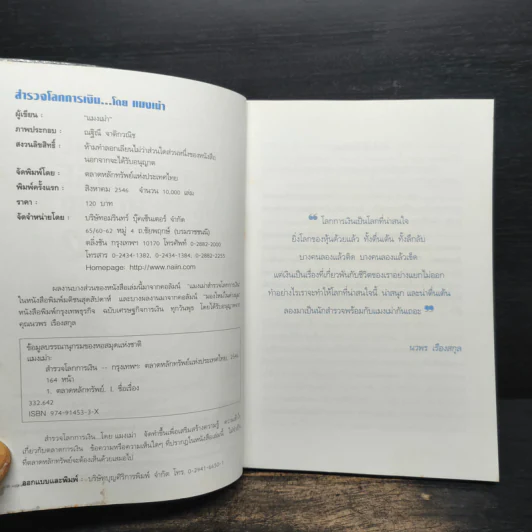 สำรวจโลกการเงิน...โดย แมงเม่า
ผู้เขียน : "แมงเม่า"
ภาพประกอบ : ณฐิณี จาติกวณิช
สงวนลิขสิทธิ์ : ห้ามทำลอกเลียนไม่ว่าส่วนใดส่วนหนึ่งของหนังสือ
นอกจากจะได้รับอนุญาต
จัดพิมพ์โดย : ตลาดหลักทรัพย์แห่งประเทศไทย
พิมพ์ครั้งแรก : สิงหาคม 2546 จำนวน 10,000 เล่ม
ราคา : 120 บาท
จัดจำหน่ายโดย : บริษัทอมรินทร์ บุ๊คเซ็นเตอร์ จำกัด
65/60-62 หมู่ 4 ถ.ชัยพฤกษ์ (บรมราชชนนี)
ตลิ่งชัน กรุงเทพฯ 10170 โทรศัพท์ 0-2882-2000
โทรสาร 0-2434-1382, 0-2434-1384, 0-2882-2255
Homepage: http://www.naiin.com
ผลงานบางส่วนของหนังสือเล่มนี้มาจากคอลัมน์ "แมงเม่าสำรวจโลกการเงิน
ในหนังสือพิมพ์มติชนสุดสัปดาห์ และบางผลงานมาจากคอลัมน์ "มองใหม่ในค่ายเดิม"
หนังสือพิมพ์กรุงเทพธุรกิจ ฉบับเศรษฐกิจการเงิน ทุกวันพุธ โดยได้รับอนุญาตจาก
คุณนวพร เรืองสกุล
ข้อมูลบรรณานุกรมของหอสมุดแห่งชาติ
แมงเม่า
สำรวจโลกการเงิน -- กรุงเทพฯ: ตลาดหลักทรัพย์แห่งประเทศไทย, 2546
164 หน้า
1. ตลาดหลักทรัพย์, I. ชื่อเรื่อง
332.642
ISBN 974-91453-3-X
สำรวจโลกการเงิน...โดย แมงเม่า จัดทำขึ้นเพื่อเสริมสร้างความรู้ ความเข้าใจ
เกี่ยวกับตลาดการเงิน ข้อความหรือความเห็นใดๆ ที่ปรากฏในหนังสือเล่มนี้ ไม่จำเป็น
ที่ตลาดหลักทรัพย์จะต้องเห็นด้วยเสมอไป
ออกแบบและพิมพ์ : บริษัทบุญศิริการพิมพ์ จำกัด โทร. 0-2941-6650-1
“ โลกการเงินเป็นโลกที่น่าสนใจ
ยิ่งโลกของหุ้นด้วยแล้ว ทั้งตื่นเต้น ทั้งลึกลับ
บางคนลองแล้วติด บางคนลองแล้วเข็ด
แต่เงินเป็นเรื่องที่เกี่ยวพันกับชีวิตของเราอย่างแยกไม่ออก
ทำอย่างไรเราจะทำให้โลกที่น่าสนใจนี้ น่าสนุก และน่าตื่นเต้น
ลองมาเป็นนักสำรวจพร้อมกับแมงเม่ากันเถอะ ”
นวพร เรืองสกุล